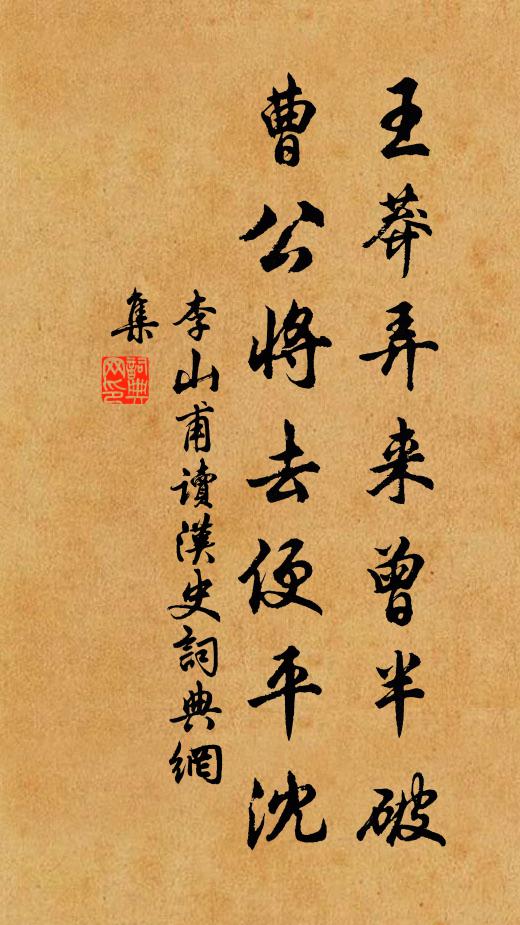 王莽弄来曾半破
曹公将去便平沈
李山甫讀漢史詞典網
集
詞典
网印